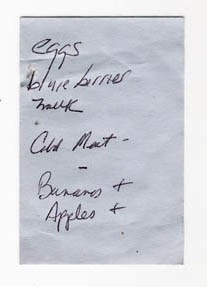 eggs
blueberries
milk
Cold Meat -
-
Bananas +
Apples +